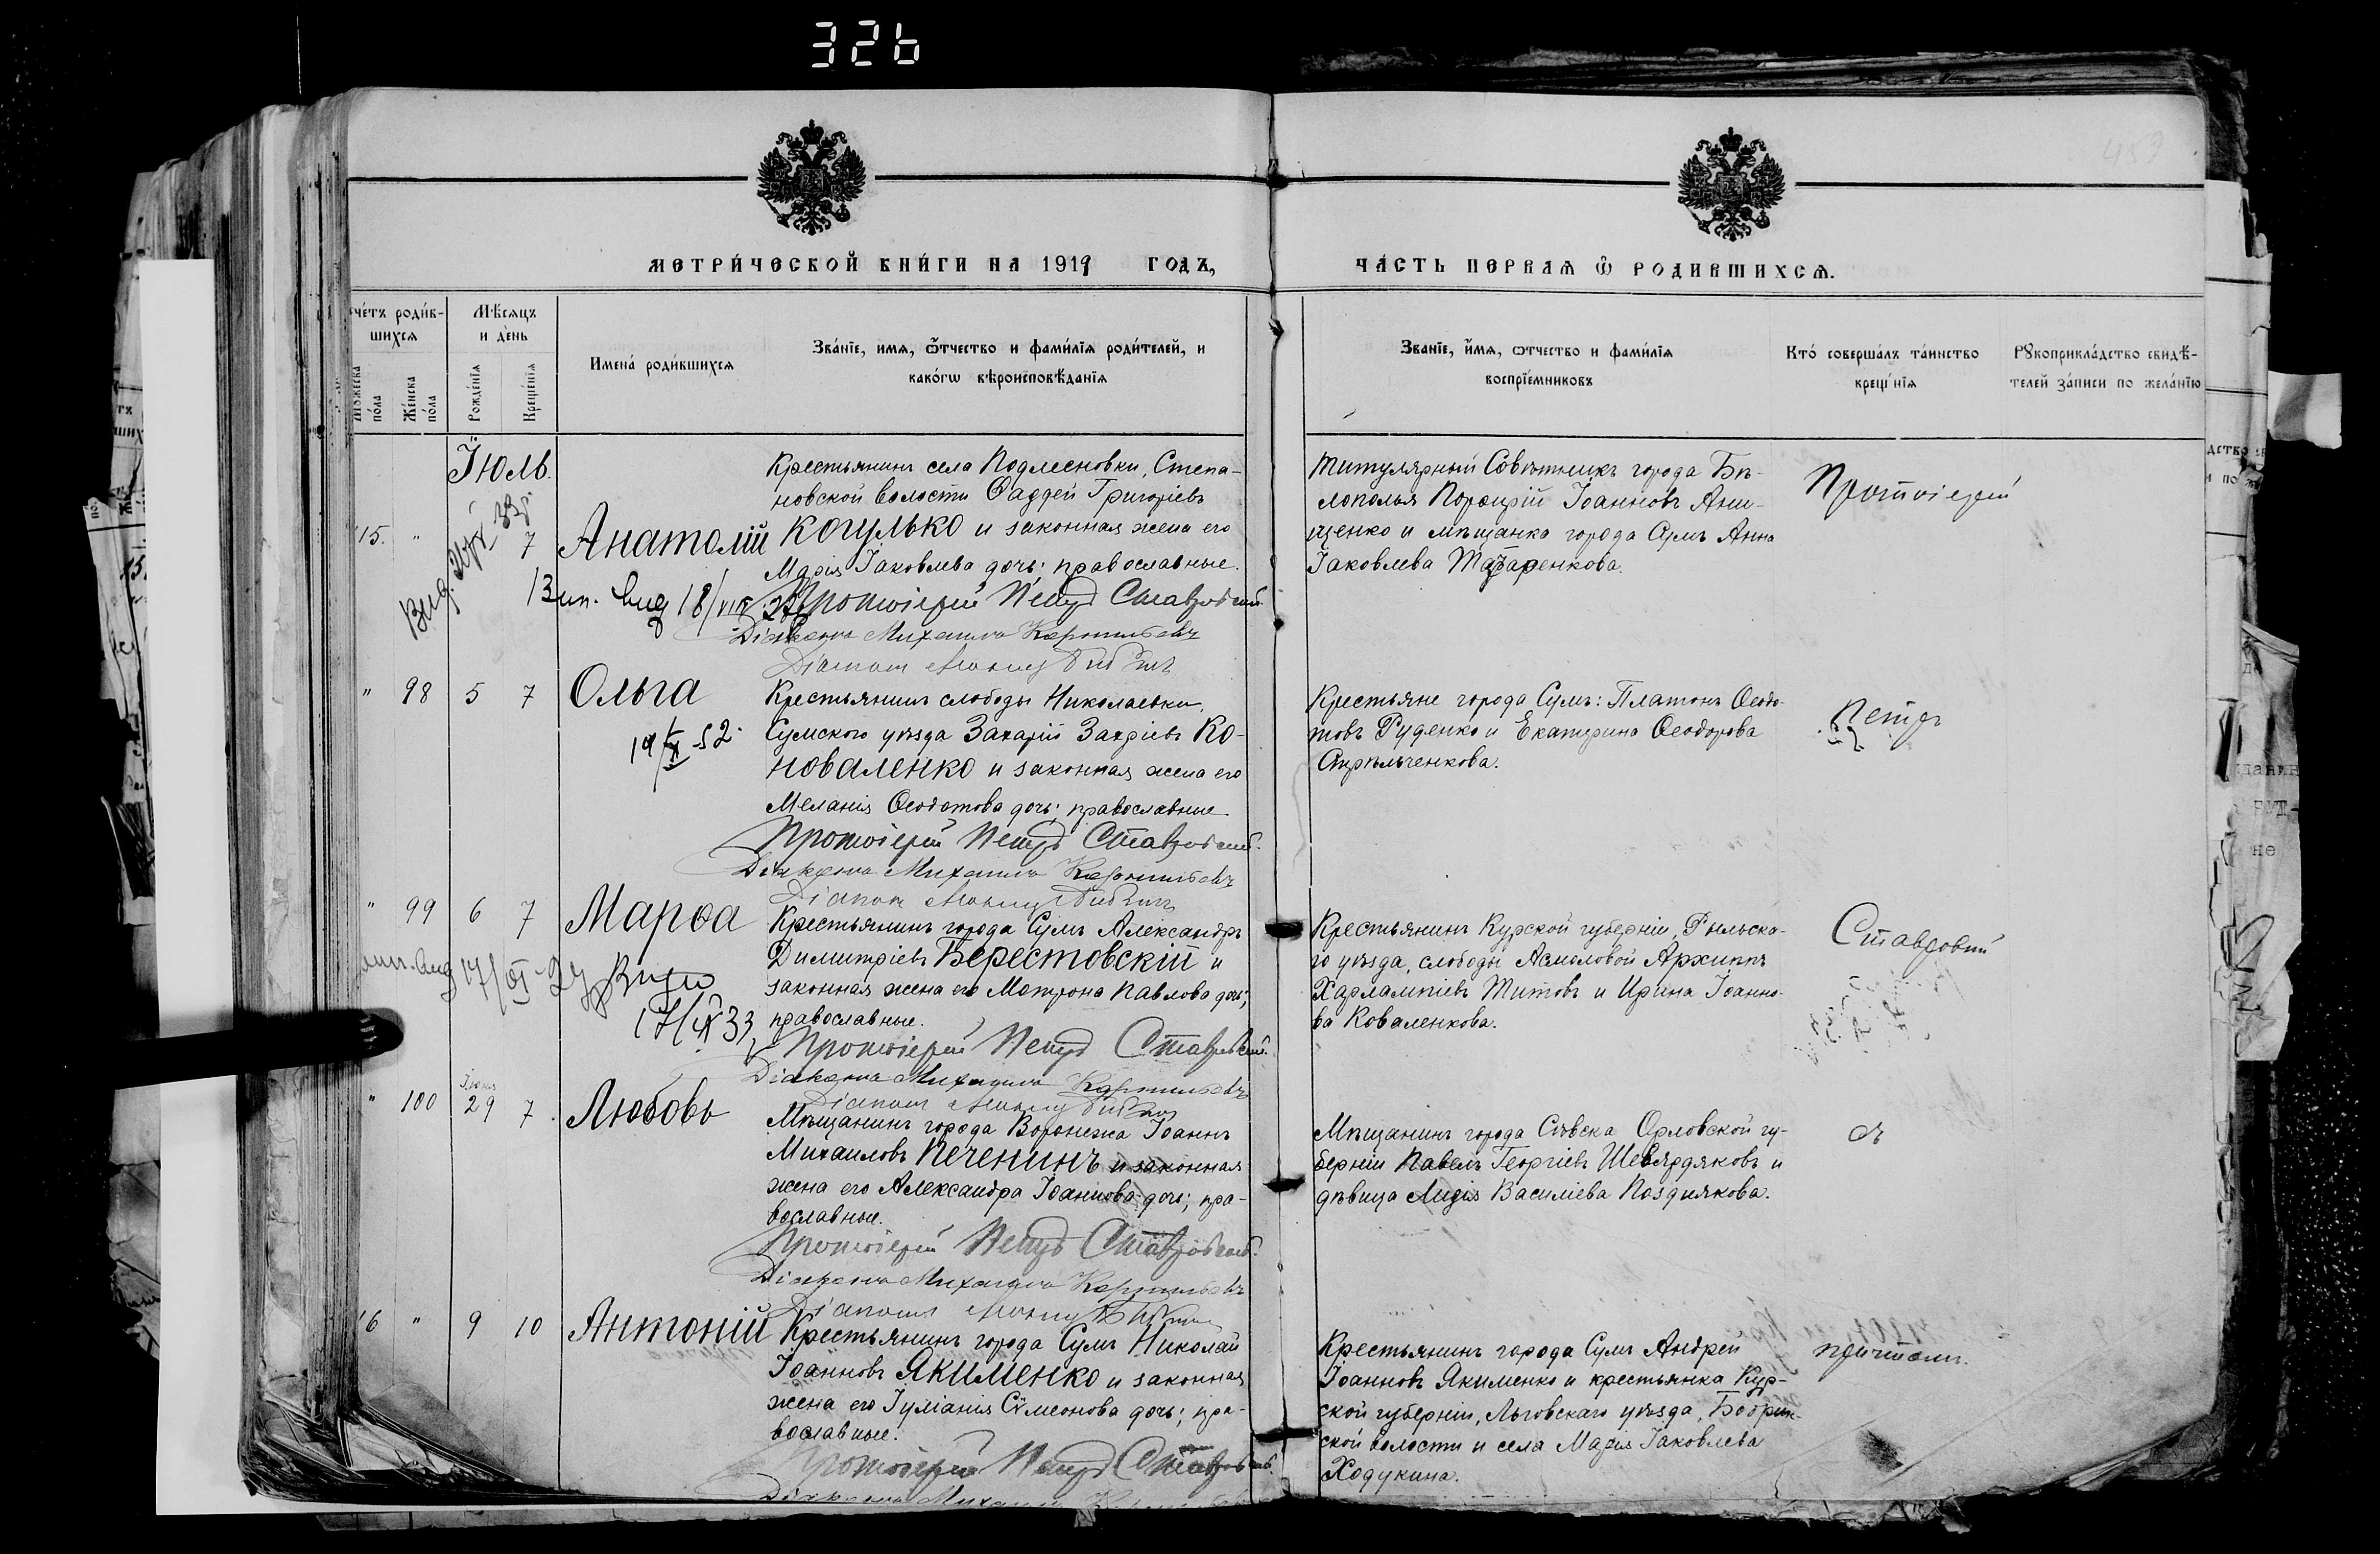 326
МЕТРИ́ЧЕСКОЙ КНИ́ГИ НА 1919 ГОДЪ,
ЧА́СТЬ ПЕРВАЯ Ѡ РОДИВШИХСѦ.
счётъ роди́в-
шихсѧ
Мѣ́сѧцъ
и де́нь
Мꙋжеска по́ла
Же́нска по́ла
Рожде́нїѧ
Креще́нїѧ
Имена́ роди́вшихсѧ
Зва́нїе, имѧ, ѿтчество и фами́лїѧ роди́телей, и
како́гѡ вѣроисповѣ́данїѧ
Зва́нїе, и́мѧ, ѻтчество и фами́лїѧ
воспрїе́мниковъ
Кто́ соверша́лъ та́инство
креще́нїѧ
Рꙋкоприкла́дство свидѣ́-
телей за́писи по жела́нїю
Іюль.
15. " 7 Анатолій
Крестьянинъ села Подлесновки, Степа-
новской волости Ѳаддей Григоріевъ
Когулько и законная жена его
Марія Іаковлева дочь; православные.
Протоіерей Петръ Ставровскій.
Діаконъ Михаилъ
Діаконъ
Титулярный Совѣтникъ города Бѣ-
лополья Порфирій Іоанновъ Ани-
щенко и мѣщанка города Сумъ Анна
Іаковлева Татаренкова.
Протоіерей
" 98 5 7 Ольга
Крестьянинъ слободы Николаевки,
Сумского уѣзда Захарій Захріевъ Ко-
новаленко и законная жена его
Меланія Ѳеодотова дочь; православные.
Протоіерей Петръ Ставровскій.
Діаконъ Михаилъ
Діаконъ
Крестьяне города Сумъ: Платонъ Ѳеодо-
товъ Руденко и Екатерина Ѳеодорова
Стрѣльченкова.
Петръ
" 99 6 7 Марѳа
17/IX 33
Крестьянинъ города Сумъ Александръ
Димитріевъ Берестовскій и
законная жена его Матрона Павлова дочь;
православные.
Протоіерей Петръ Ставровскій.
Діаконъ Михаилъ
Діаконъ
Крестьянинъ Курской губерніи, Рыльска-
го уѣзда, слободы Асмоловой Архиппъ
Харлампіевъ Титовъ и Ирина Іоанно-
ва Коваленкова.
Ставровскій
Іюня
" 100 29 7. Любовь
Мѣщанинъ города Воронежа Іоаннъ
Михаиловъ Печенинъ и законная
жена его Александра Іоаннова дочь; пра-
вославные.
Протоіерей Петръ Ставровскій.
Діаконъ Михаилъ
Діаконъ
Мѣщанинъ города Сѣвска Орловской гу-
берніи Павелъ Георгіевъ Шевярдяковъ и
дѣвица Лидія Василіева Позднякова.
съ
16 " 9 10 Антоній
Крестьянинъ города Сумъ Николай
Іоанновъ Якименко и законная
жена его Іуліанія Сѷмеонова дочь; пра-
вославные.
Протоіерей Петръ Ставровскій.
Діаконъ Михаилъ
Крестьянинъ города Сумъ Андрей
Іоанновъ Якименко и крестьянка Кур-
ской губерніи, Льговскаго уѣзда,
ской волости и села Марія Іаковлева
Ходукина.
причтомъ.